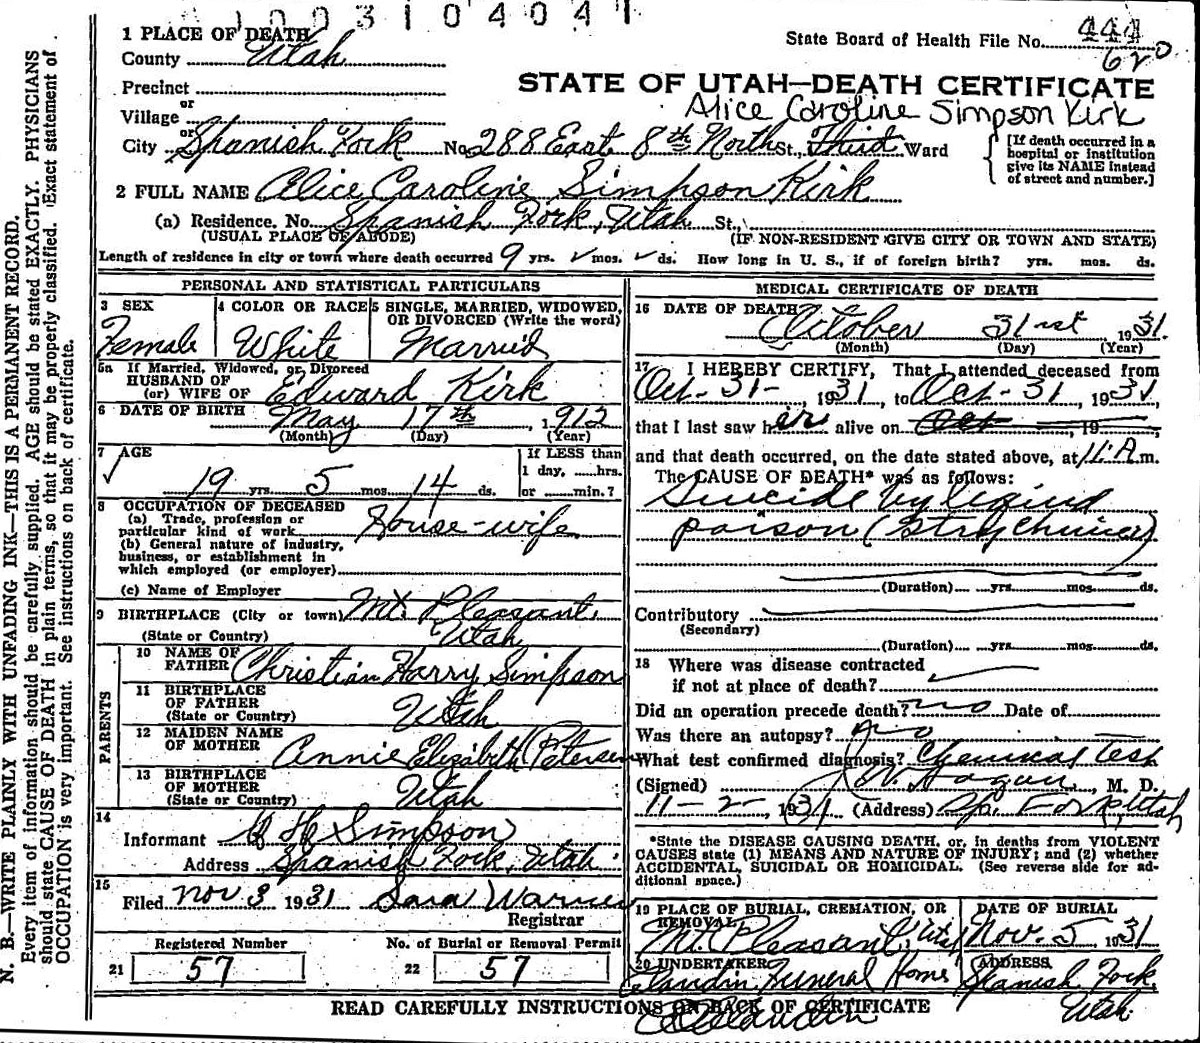 1003104041
1 PLACE OF DEATH
County Utah
State Board of Health File No. 444
620
Precinct
or
Village
or
STATE OF UTAH—DEATH CERTIFICATE
Alice Caroline Simpson Kirk
City Spanish Fork No. 288 East 8th North St., Third Ward
[If death occurred in a hospital or institution give its NAME instead of street and number.]
2 FULL NAME Alice Caroline Simpson Kirk
(a) Residence. No. Spanish Fork, Utah St.,
(USUAL PLACE OF ABODE) (IF NON-RESIDENT GIVE CITY OR TOWN AND STATE)
Length of residence in city or town where death occurred 9 yrs. mos. ds. How long in U. S., if of foreign birth? yrs. mos. ds.
PERSONAL AND STATISTICAL PARTICULARS
3 SEX
Female
4 COLOR OR RACE
White
5 SINGLE, MARRIED, WIDOWED,
OR DIVORCED (Write the word)
Married
5a If Married, Widowed, or Divorced
HUSBAND OF
(or) WIFE OF Edward Kirk
6 DATE OF BIRTH May 17th, 1912
(Month) (Day) (Year)
7 AGE
19 yrs. 5 mos. 14 ds.
If LESS than
1 day, hrs.
or min.?
8 OCCUPATION OF DECEASED
(a) Trade, profession or
particular kind of work House-wife
(b) General nature of industry,
business, or establishment in
which employed (or employer)
(c) Name of Employer
9 BIRTHPLACE (City or town) Mt. Pleasant,
(State or Country) Utah
PARENTS
10 NAME OF
FATHER Christian Harry Simpson
11 BIRTHPLACE
OF FATHER
(State or Country) Utah
12 MAIDEN NAME
OF MOTHER Annie Elizabeth (Petersen
13 BIRTHPLACE
OF MOTHER
(State or Country) Utah
14
Informant C H Simpson
Address Spanish Fork, Utah.
15
Filed Nov 3 1931 Sara Warner
Registrar
Registered Number
21 57
No. of Burial or Removal Permit
22 57
MEDICAL CERTIFICATE OF DEATH
16 DATE OF DEATH
October 31st 1931.
(Month) (Day) (Year)
17 I HEREBY CERTIFY, That I attended deceased from
Oct-31-, 1931, to Oct-31, 1931,
that I last saw her alive on Oct, 19
and that death occurred, on the date stated above, at 11 A.m.
The CAUSE OF DEATH* was as follows:
Suicide by liquid
poison (Strychnine)
(Duration) yrs. mos. ds.
Contributory
(Secondary)
(Duration) yrs. mos. ds.
18 Where was disease contracted
if not at place of death?
Did an operation precede death? no Date of
Was there an autopsy? no
What test confirmed diagnosis? Chemical Test
(Signed) Hagan, M. D.
11-2-, 1931 (Address) Sp. Fork, Utah
*State the DISEASE CAUSING DEATH, or, in deaths from VIOLENT
CAUSES state (1) MEANS AND NATURE OF INJURY; and (2) whether
ACCIDENTAL, SUICIDAL OR HOMICIDAL. (See reverse side for ad-
ditional space.)
19 PLACE OF BURIAL, CREMATION, OR
REMOVAL
Mt. Pleasant, Utah
DATE OF BURIAL
Nov-5 1931
20 UNDERTAKER
Claudin Funeral Home
ADDRESS
Spanish Fork,
Utah
Claudin
READ CAREFULLY INSTRUCTIONS ON BACK OF CERTIFICATE
N. B.—WRITE PLAINLY WITH UNFADING INK—THIS IS A PERMANENT RECORD.
Every item of information should be carefully supplied. AGE should be stated EXACTLY. PHYSICIANS
should state CAUSE OF DEATH in plain terms, so that it may be properly classified. Exact statement of
OCCUPATION is very important. See instructions on back of certificate.